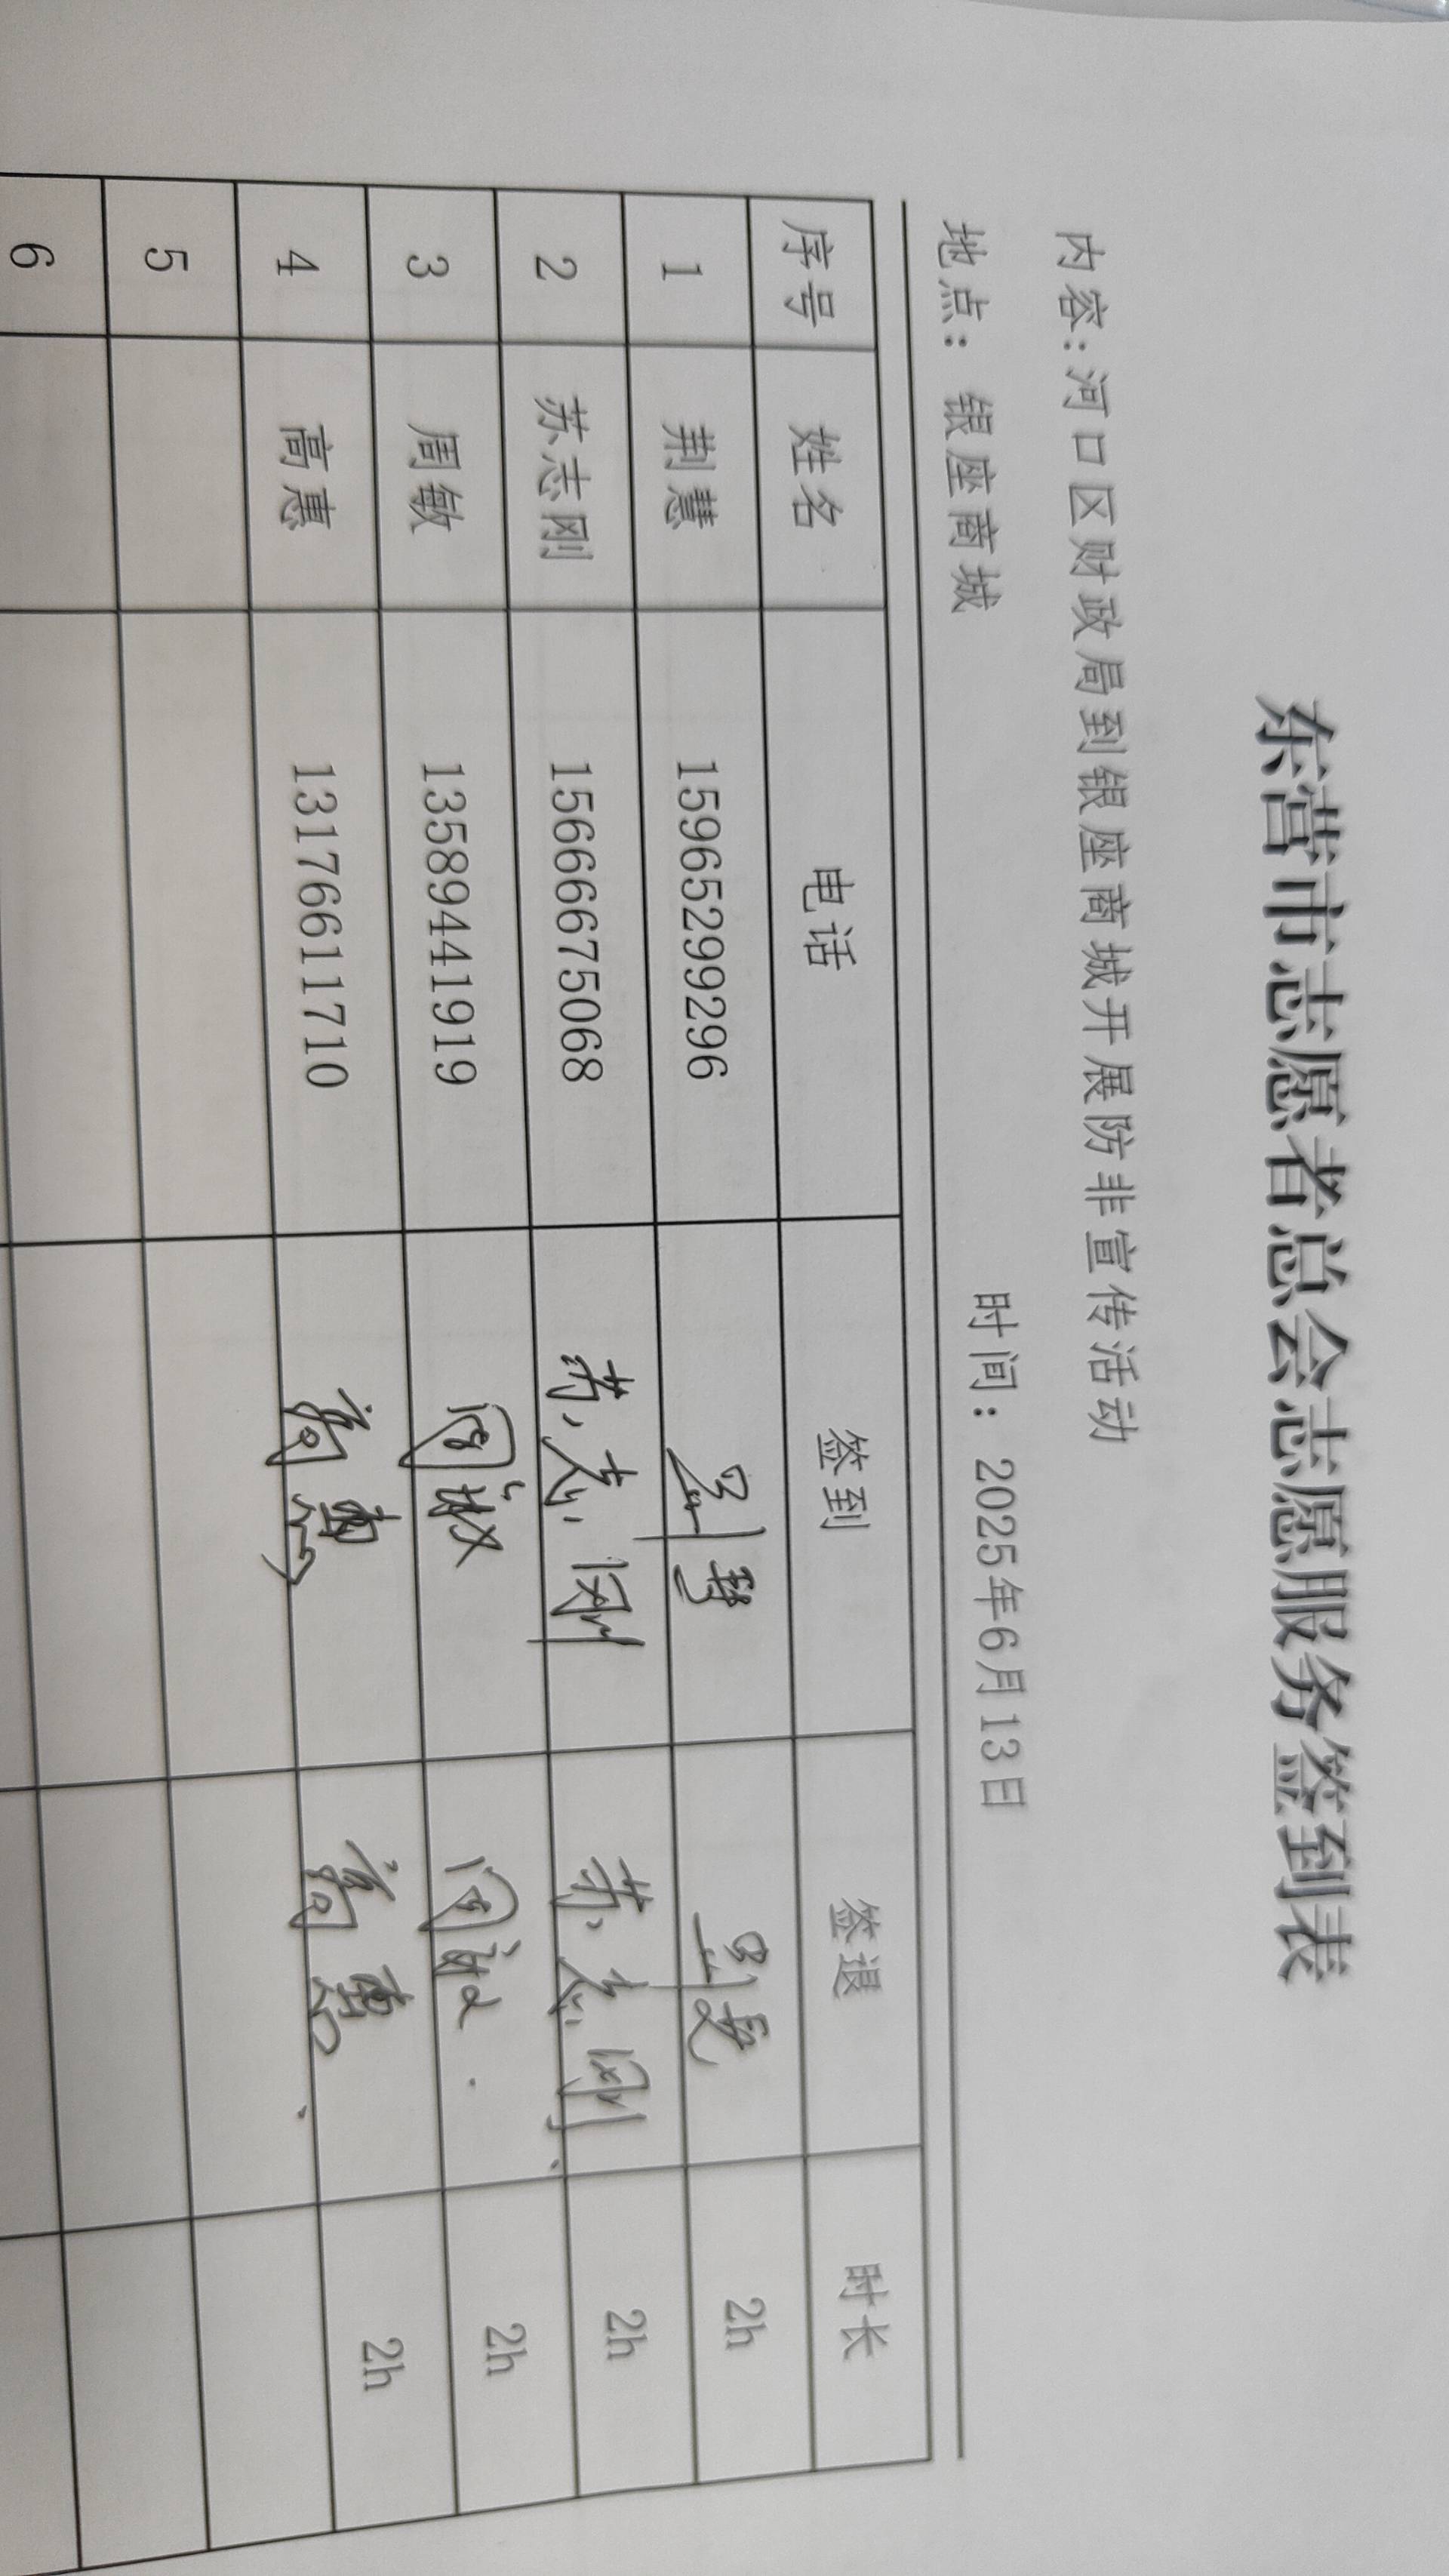 东营市志愿者总会志愿服务签到表
内容：河口区财政局到银座商城开展防非宣传活动
地点： 银座商城 时间：2025年6月13日
序号 姓名 电话 签到 签退 时长
1 荆慧 15965299296 荆慧 荆慧 2h
2 苏志刚 15666675068 苏志刚 苏志刚 2h
3 周敏 13589441919 周敏 周敏 2h
4 高惠 13176611710 高惠 高惠 2h
5
6